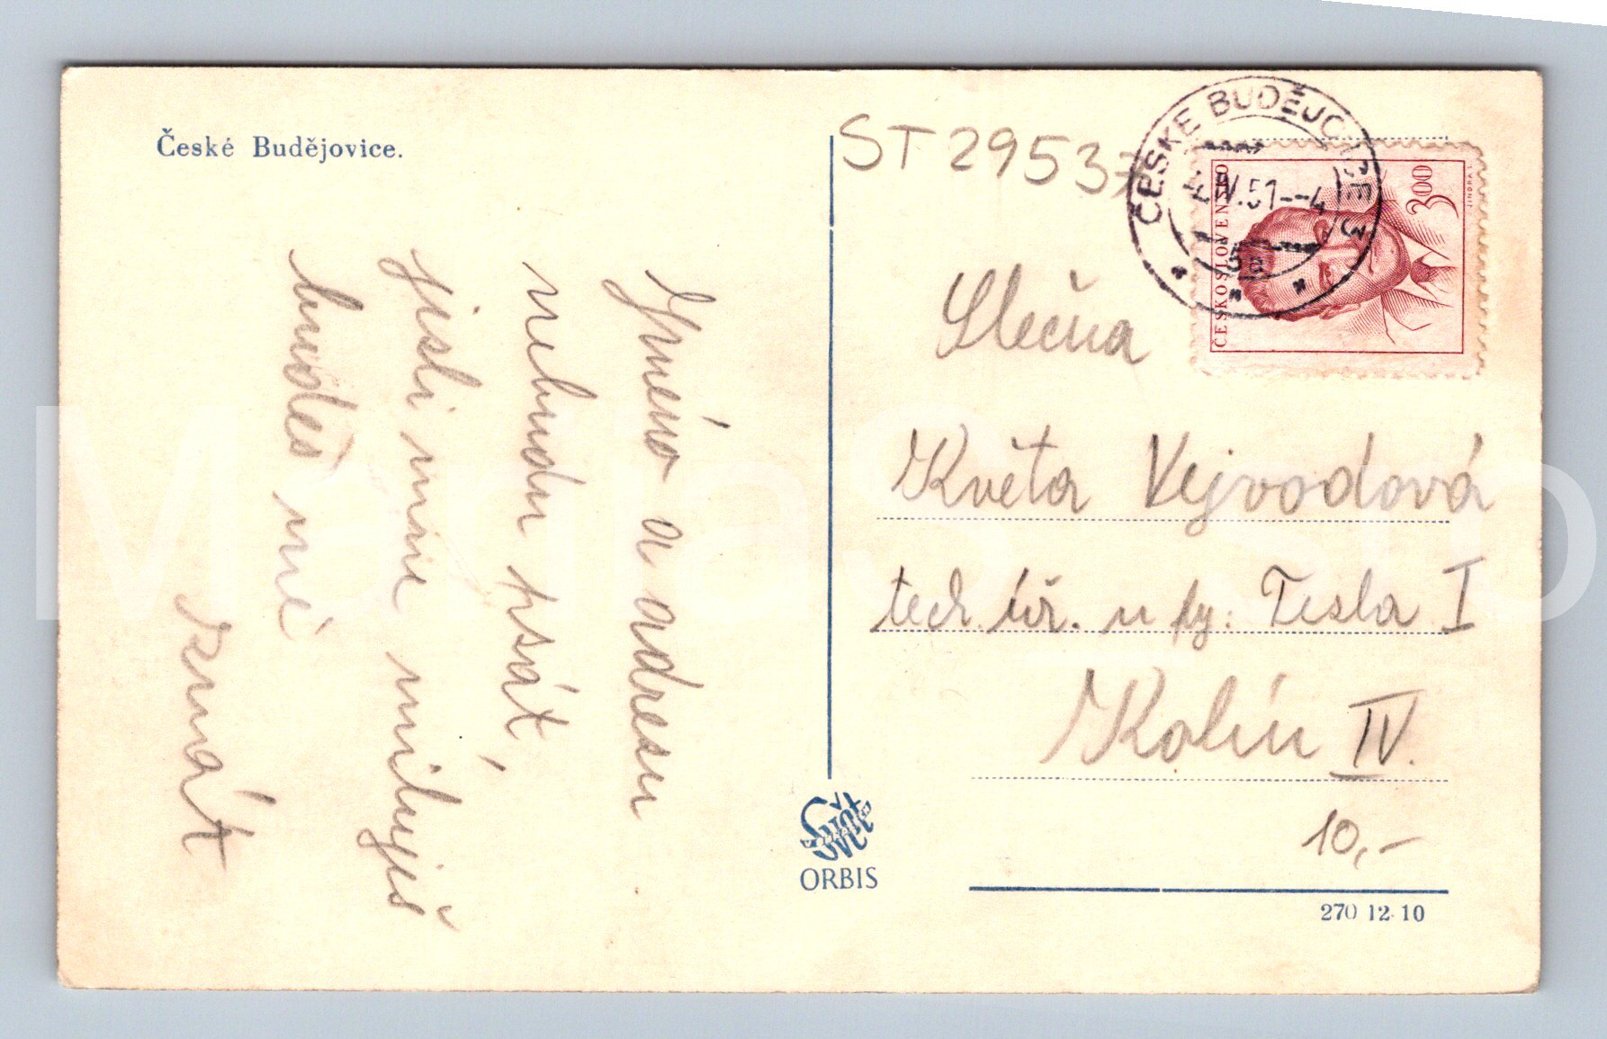 České Budějovice.
ST 29537
ČESKÉ BUDĚJOVICE 3
IV.51--4
ČESKOSLOVENSKO
3.00
Jméno a adresu
nebudu psát,
jisli mne miluješ
budeš mě
znát
Slečna
Květa Vejvodová
tech úř. u fy: Tesla I
Kolín IV.
10,-
Svět
ORBIS
270 12 10